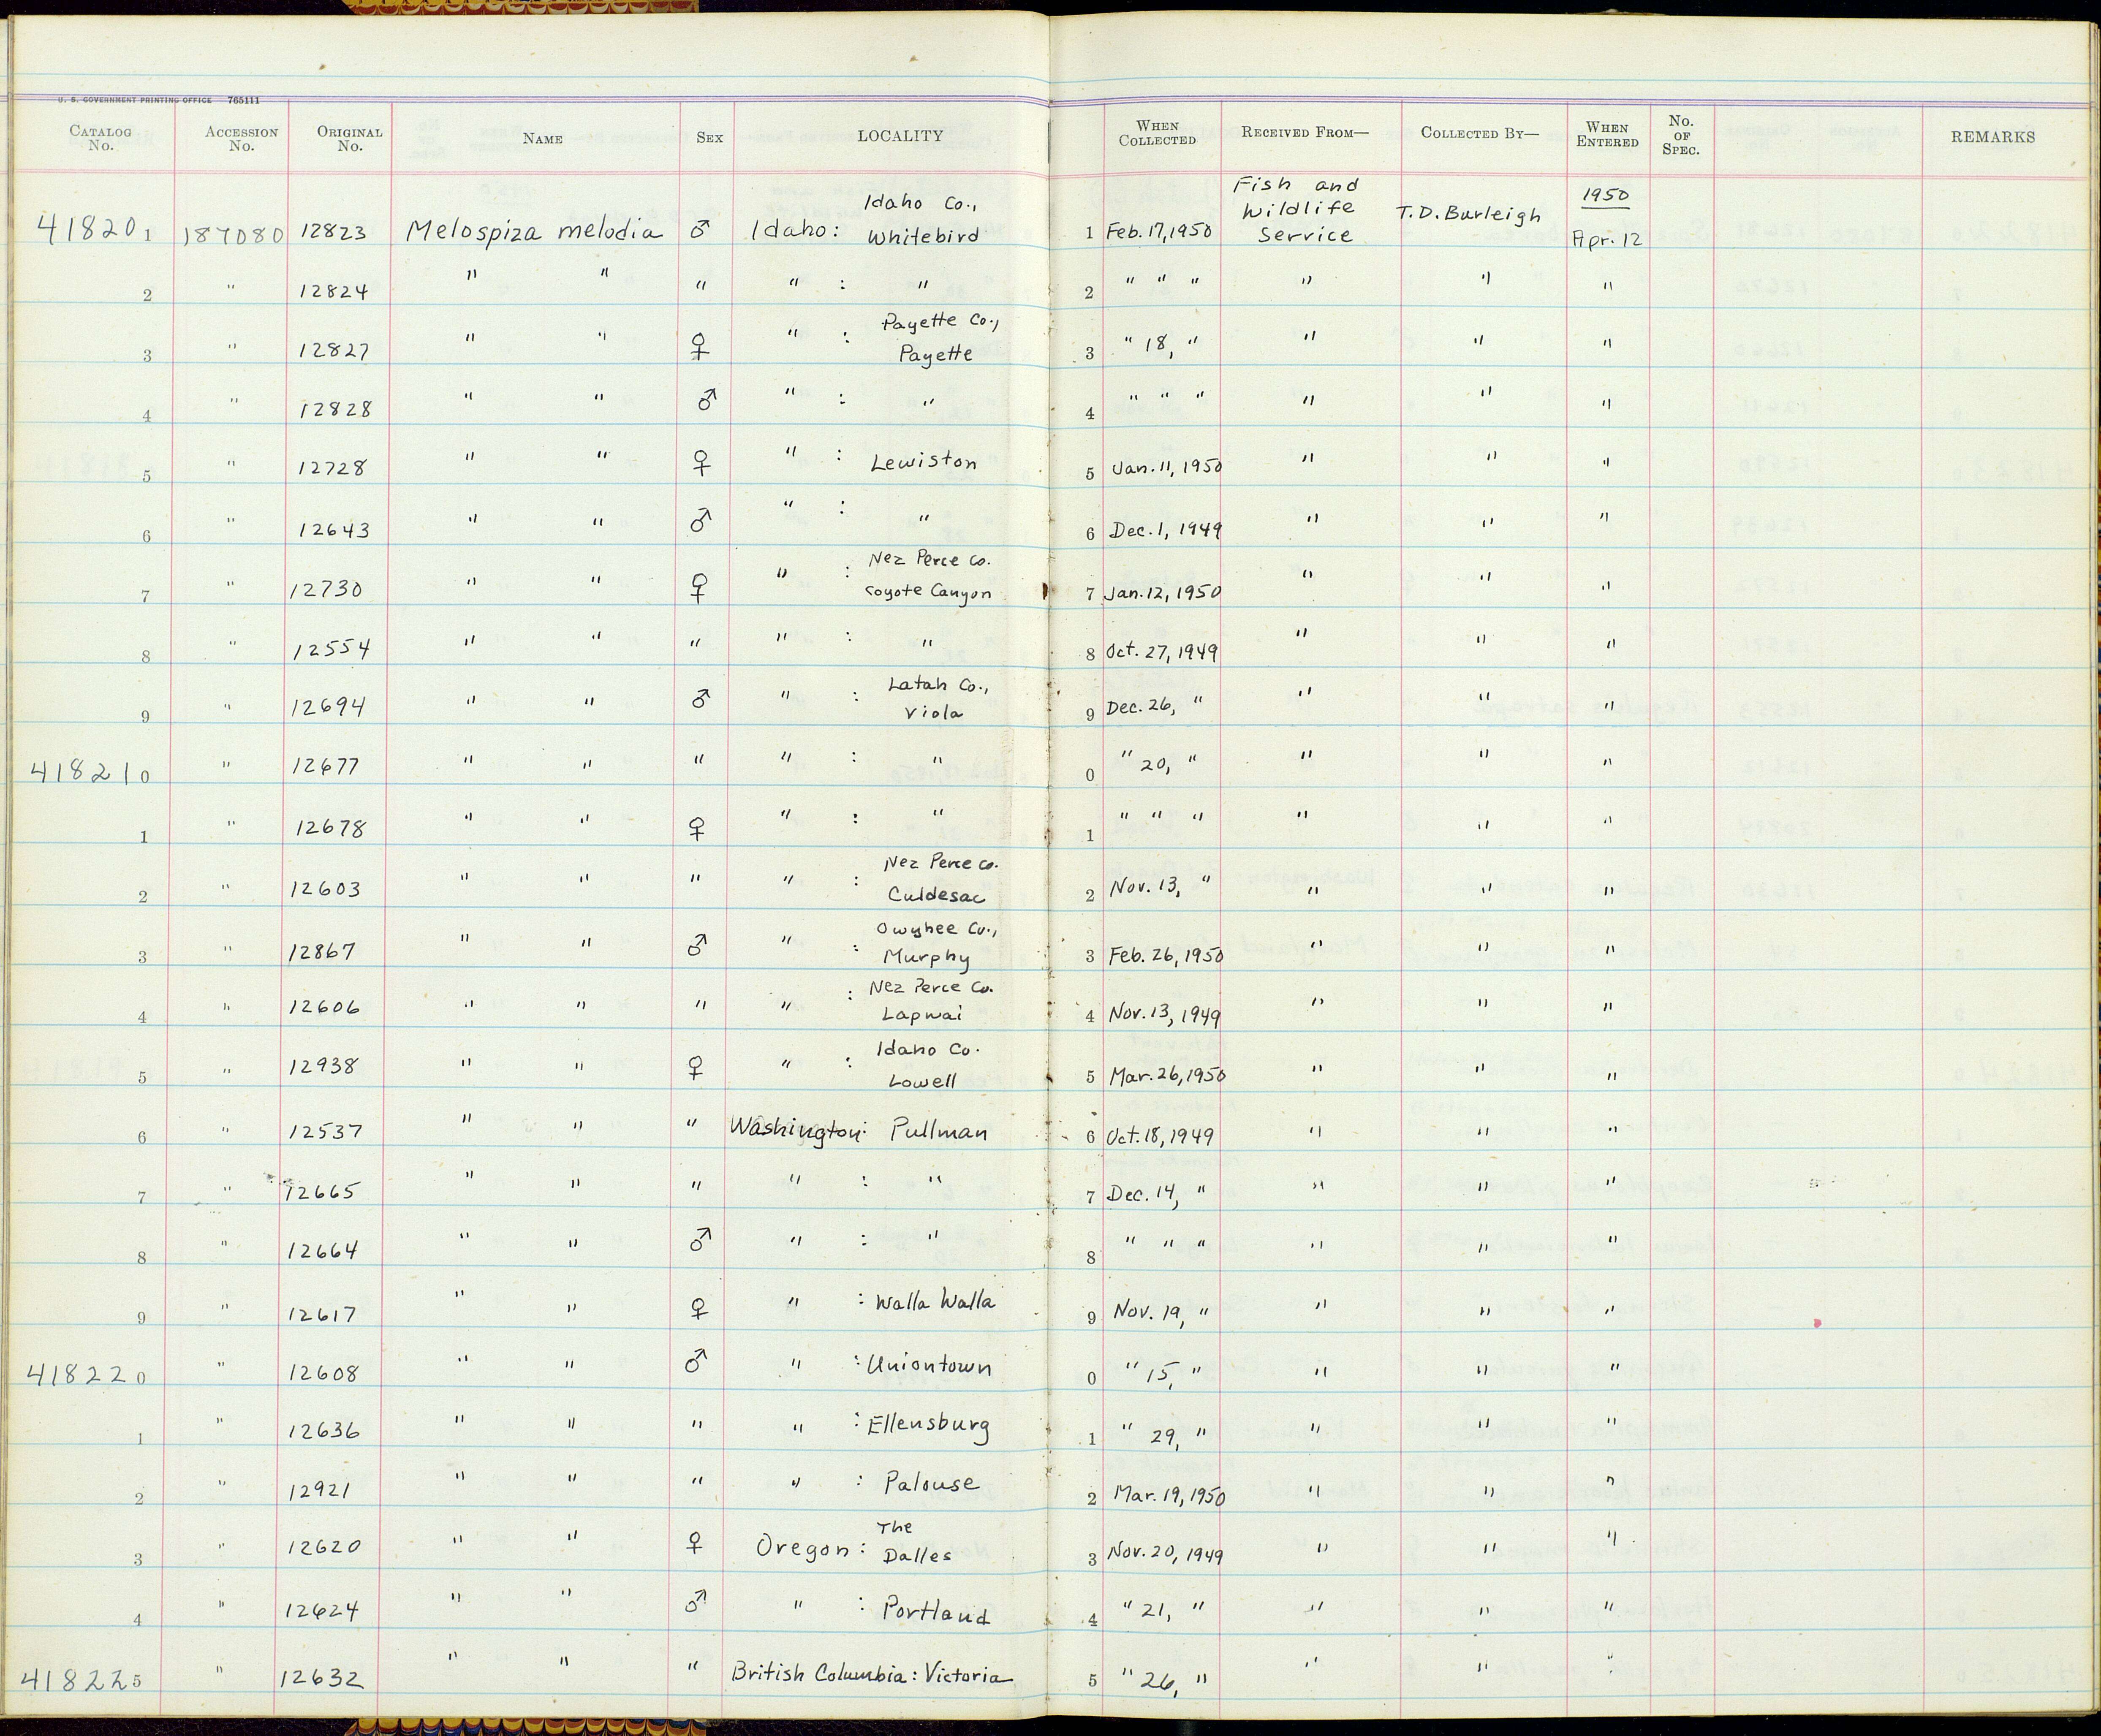 U. S. GOVERNMENT PRINTING OFFICE 765111
CATALOG No. ACCESSION No. ORIGINAL No. NAME SEX LOCALITY WHEN COLLECTED RECEIVED FROM— COLLECTED BY— WHEN ENTERED No. OF SPEC. REMARKS
418201 187080 12823 Melospiza melodia ♂ Idaho: Idaho Co., Whitebird 1 Feb. 17, 1950 Fish and Wildlife Service T.D. Burleigh 1950 Apr. 12
2 " 12824 " " " " : " 2 " " " " " "
3 " 12827 " " ♀ " : Payette Co., Payette 3 " 18, " " " "
4 " 12828 " " ♂ " : " 4 " " " " " "
5 " 12728 " " ♀ " : Lewiston 5 Jan. 11, 1950 " " "
6 " 12643 " " ♂ " : " 6 Dec. 1, 1949 " " "
7 " 12730 " " ♀ " : Nez Perce Co. Coyote Canyon 7 Jan. 12, 1950 " " "
8 " 12554 " " " " : " 8 Oct. 27, 1949 " " "
9 " 12694 " " ♂ " : Latah Co., Viola 9 Dec. 26, " " " "
418210 " 12677 " " " " : " 0 " 20, " " " "
1 " 12678 " " ♀ " : " 1 " " " " " "
2 " 12603 " " " " : Nez Perce Co. Culdesac 2 Nov. 13, " " " "
3 " 12867 " " ♂ " : Owyhee Co., Murphy 3 Feb. 26, 1950 " " "
4 " 12606 " " " " : Nez Perce Co. Lapwai 4 Nov. 13, 1949 " " "
5 " 12938 " " ♀ " : Idaho Co. Lowell 5 Mar. 26, 1950 " " "
6 " 12537 " " " Washington: Pullman 6 Oct. 18, 1949 " " "
7 " 12665 " " " " : " 7 Dec. 14, " " " "
8 " 12664 " " ♂ " : " 8 " " " " " "
9 " 12617 " " ♀ " : Walla Walla 9 Nov. 19, " " " "
418220 " 12608 " " ♂ " : Uniontown 0 " 15, " " " "
1 " 12636 " " " " : Ellensburg 1 " 29, " " " "
2 " 12921 " " " " : Palouse 2 Mar. 19, 1950 " " "
3 " 12620 " " ♀ Oregon: The Dalles 3 Nov. 20, 1949 " " "
4 " 12624 " " ♂ " : Portland 4 " 21, " " " "
418225 " 12632 " " " British Columbia: Victoria 5 " 26, " " " "